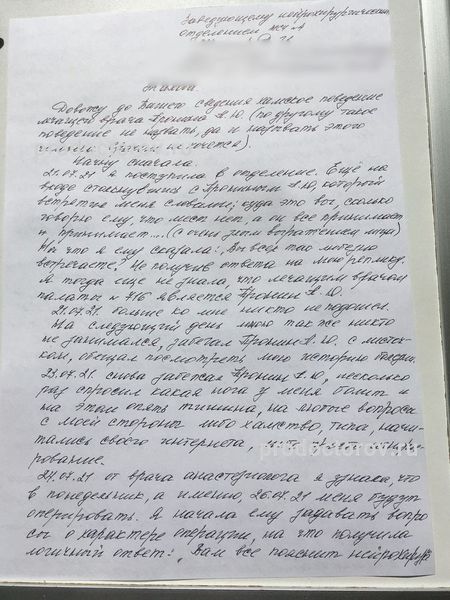 Заведующему нейрохирургическим
отделением МСЧ №4
21
Довожу до Вашего сведения хамское поведение
лечащего врача Пронина А.Ю. (по другому такое
поведение не назвать, да и называть этого
не хочется).
Начну сначала.
21.07.21 я поступила в отделение. Ещё на
входе столкнувшись с Прониным А.Ю, который
встретил меня словами: куда это вот, сколько
говорю ему, что мест нет, а он все принимает
и принимает.... (с очень злым выражением лица)
На что я ему сказала: „Вы всех так любезно
встречаете? Не получив ответа на мою реплику.
Я тогда еще не знала, что лечащим врачом
палаты №416 является Пронин А.Ю.
21.07.21. больше ко мне никто не подошел.
На следующий день мною так же никто
не занимался, забегал Пронин А.Ю. с листоч-
ком, обещал посмотреть мою историю болезни.
23.07.21. снова забегал Пронин А.Ю, несколько
раз спросил какая нога у меня болит и
на этом опять тишина, на любые вопросы
с моей стороны либо хамство, типа, начи-
тались своего интернета, либо
рование.
24.07.21 от врача анастезиолога я узнала, что
в понедельник, а именно, 26.07.21 меня будут
оперировать. Я начала ему задавать вопро
сы о характере операции, на что получила
логичный ответ: „Вам все пояснит нейрохирург
prodoctorov.ru